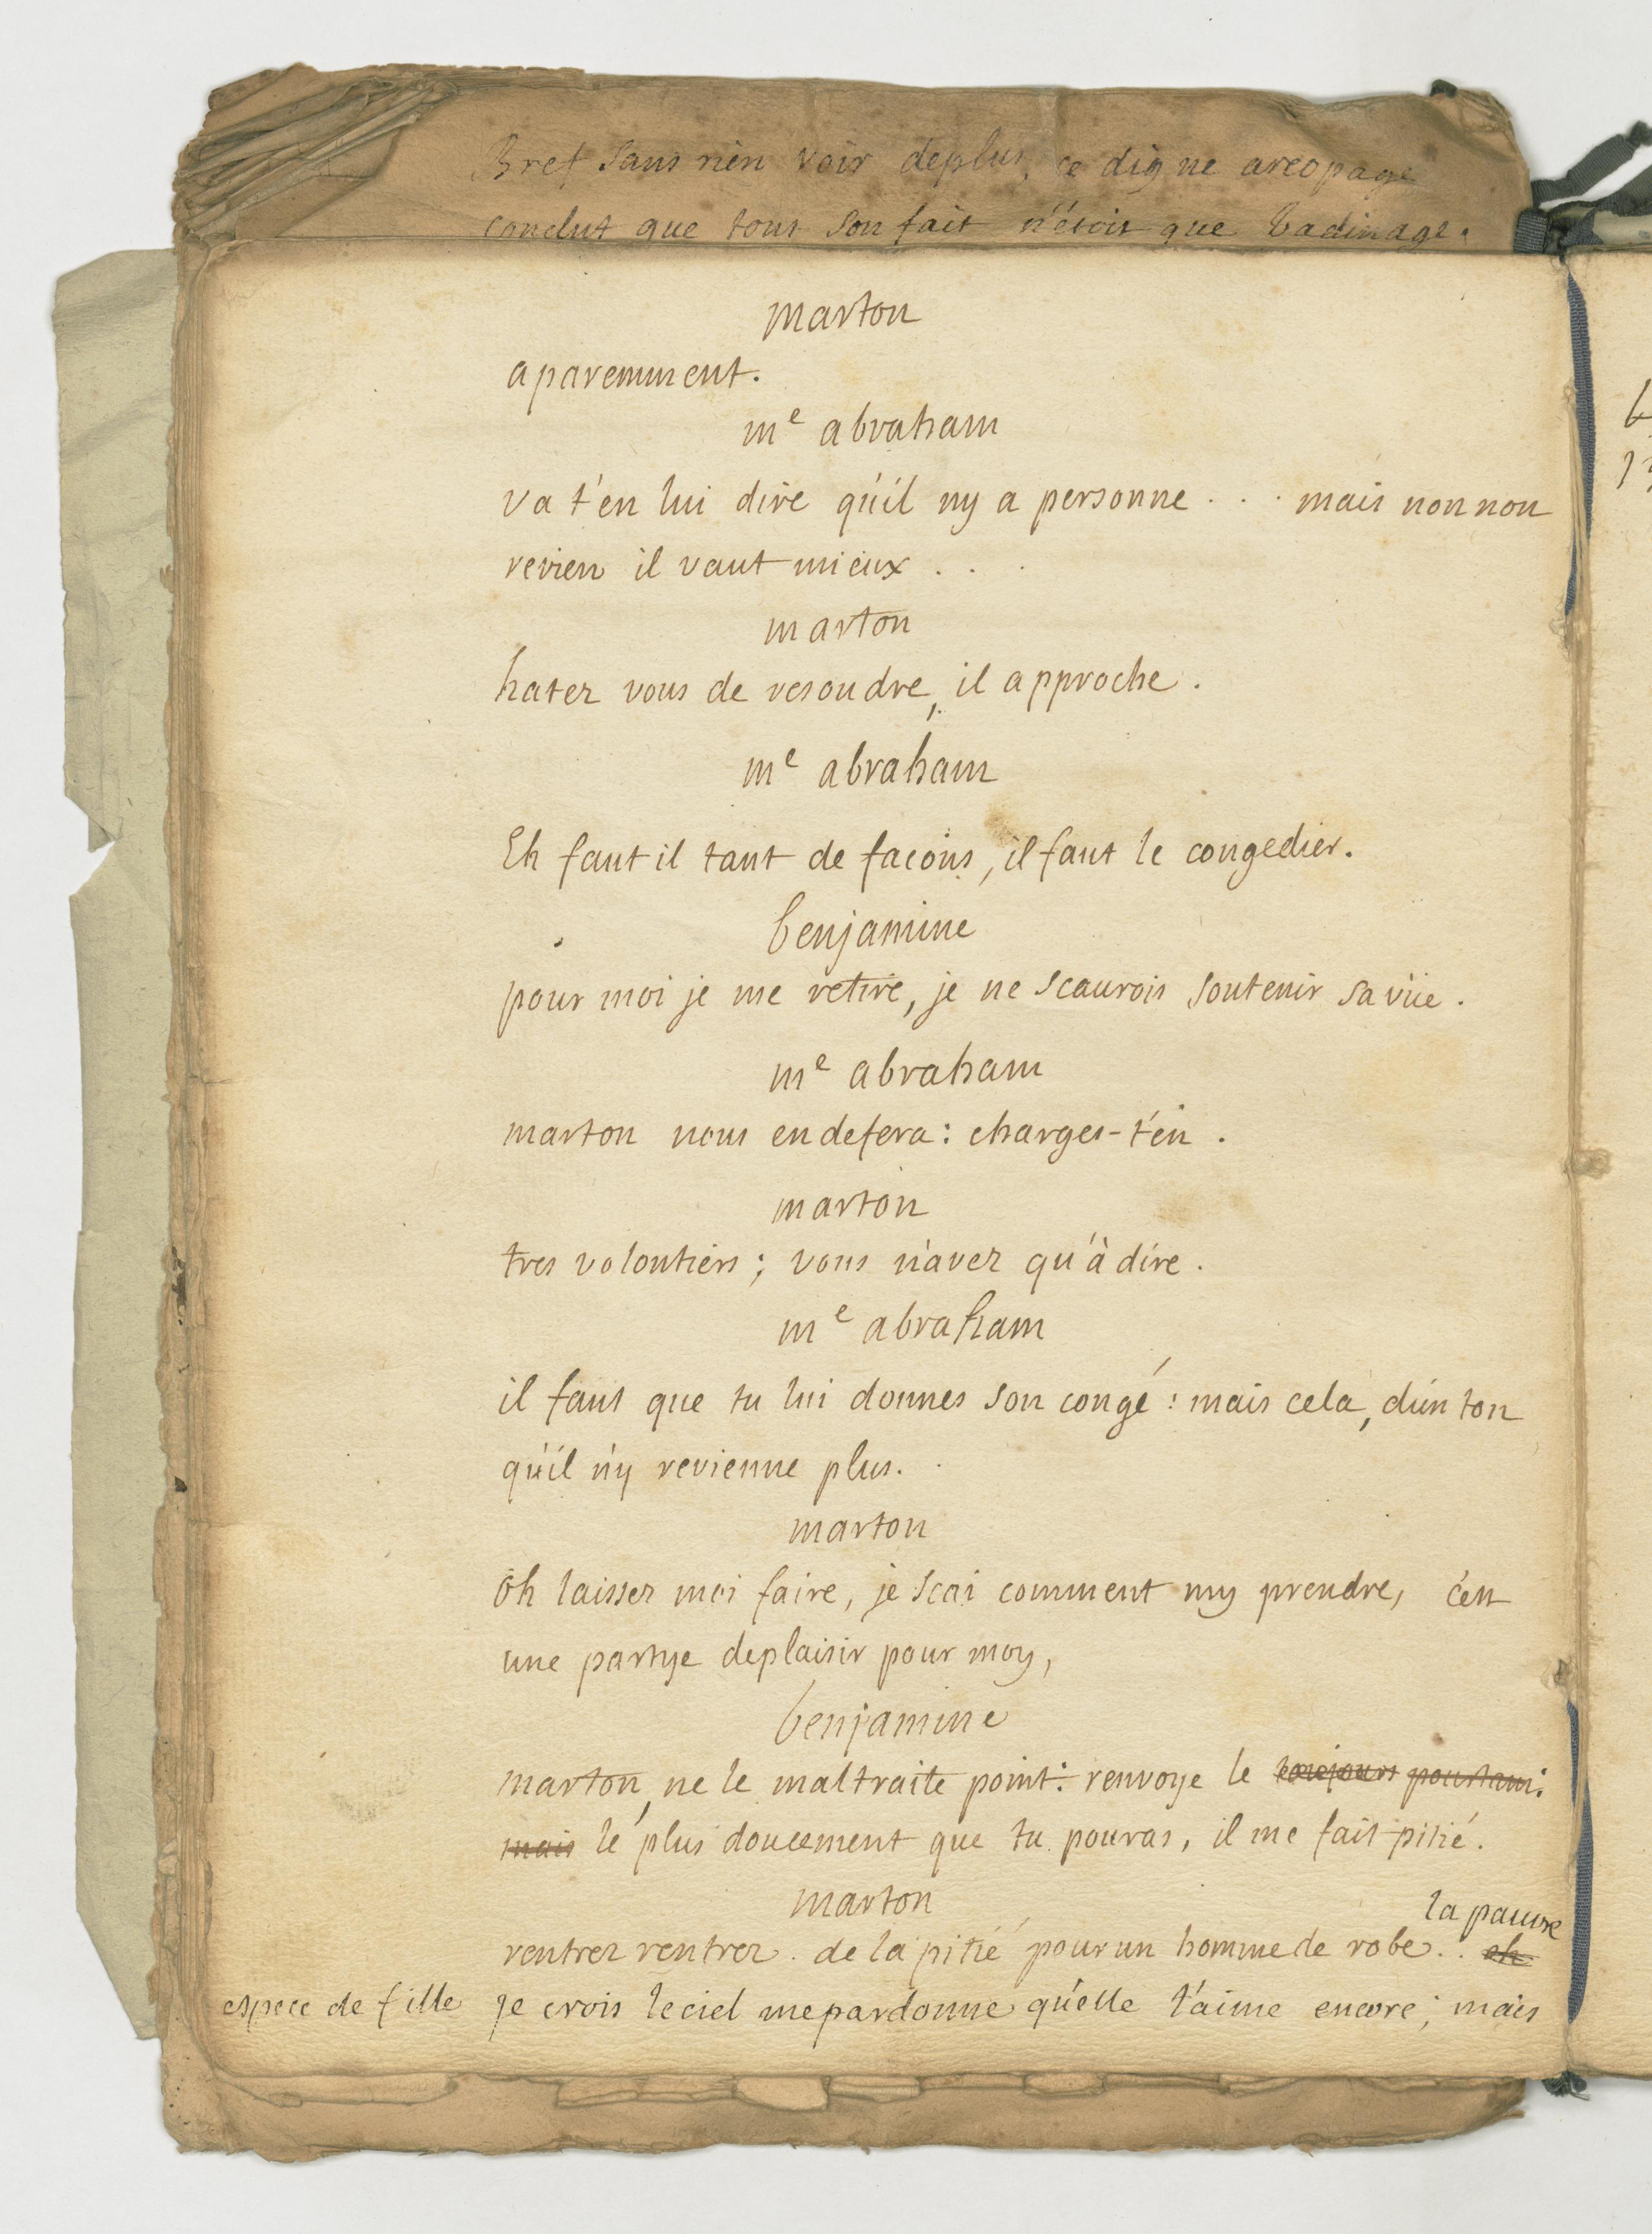 Bref sans rien voir deplus, ce digne areopage
conclut que tout son fait n'étoit que badinage.
marton
aparemment.
mᵉ abraham
va t'en lui dire qu'il ny a personne . . . mais non non
revien il vaut mieux . . .
marton
hatez vous de resoudre, il approche.
mᵉ abraham
Eh faut il tant de facons, il faut le congedier.
benjamine
pour moi je me retire, je ne scaurois soutenir sa vüe.
mᵉ abraham
marton nous en defera: charges-t'en.
marton
tres volontiers; vous n'avez qu'à dire.
mᵉ abraham
il faut que tu lui donnes son congé: mais cela, d'un ton
qu'il n'y revienne plus.
marton
oh laissez moi faire, je scai comment my prendre, c'est
une partye deplaisir pour moy,
benjamine
marton, ne le maltraite point: renvoye le toujours pourtant:
mais le plus doucement que tu pouras, il me fait pitié.
marton
la pauvre
rentrez rentrez. de la pitié pour un homme de robe.. eh
espece de fille je crois le ciel me pardonne qu'elle l'aime encore; mais